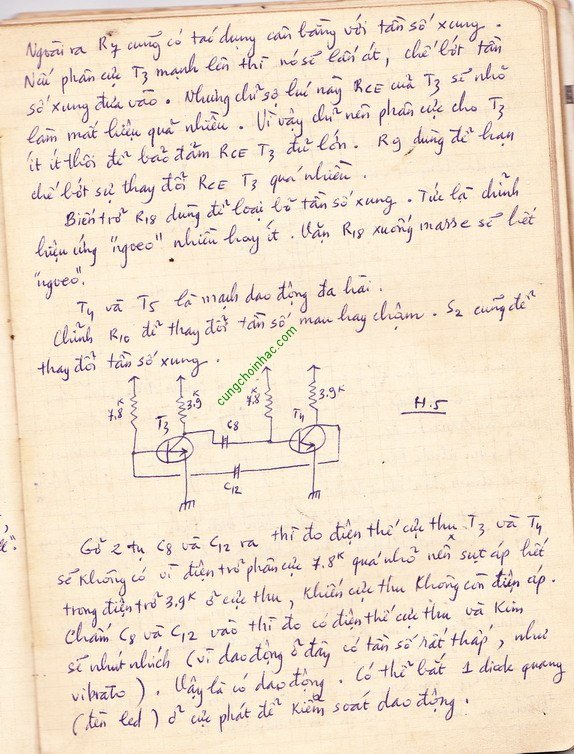 Ngoài ra R9 cũng có tác dụng cân bằng với tần số xung.
Nếu phân cực T3 mạnh lên thì nó sẽ lấn át, chế bớt tần
số xung đưa vào. Nhưng chỉ sợ lúc này RCE của T3 sẽ nhỏ
làm mất hiệu quả nhiều. Vì vậy chỉ nên phân cực cho T3
ít ít thôi để bảo đảm RCE T3 đủ lớn. R9 dùng để hạn
chế bớt sự thay đổi RCE T3 quá nhiều.
Biến trở R18 dùng để loại bỏ tần số xung. Tức là chỉnh
hiệu ứng "ngoeo" nhiều hay ít. Vặn R18 xuống masse sẽ hết
"ngoeo".
T4 và T5 là mạch dao động đa hài.
Chỉnh R10 để thay đổi tần số mau hay chậm. S2 cũng để
thay đổi tần số xung.
cungchoinhac.com
7.8K 3.9K 7.8K 3.9K
T3 C8 T4 H.5
C12
Gỡ 2 tụ C8 và C12 ra thì đo điện thế cực thu T3 và T4
sẽ không có vì điện trở phân cực 7.8K quá nhỏ nên sụt áp hết
trong điện trở 3.9K ở cực thu, khiến cực thu không còn điện áp.
Chấm C8 và C12 vào thì đo có điện thế cực thu và kim
sẽ nhứt nhích (vì dao động ở đây có tần số rất thấp, như
vibrato). Vậy là có dao động. Có thể bắt 1 diode quang
(đèn led) ở cực phát để kiểm soát dao động.